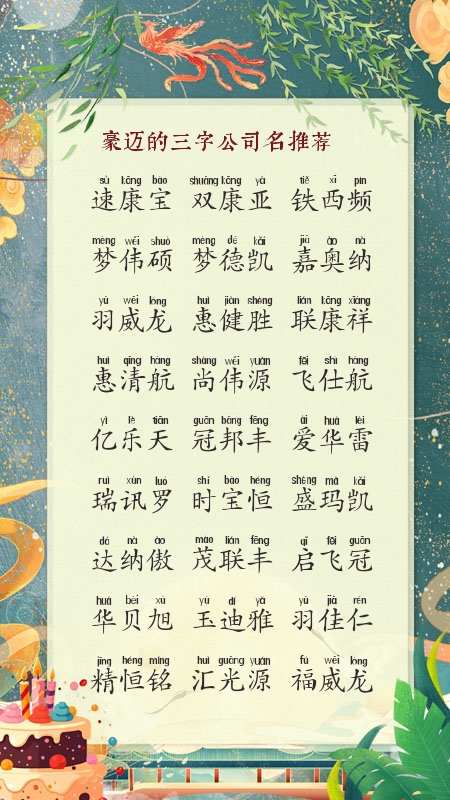 豪迈的三字公司名推荐
sù kāng bǎo shuāng kāng yà tiě xī pín
速康宝 双康亚 铁西频
mèng wěi shuò mèng dé kǎi jiā ào nà
梦伟硕 梦德凯 嘉奥纳
yǔ wēi lóng huì jiàn shèng lián kāng xiáng
羽威龙 惠健胜 联康祥
huì qīng háng shàng wěi yuán fēi shì háng
惠清航 尚伟源 飞仕航
yì lè tiān guān bāng fēng ài huá léi
亿乐天 冠邦丰 爱华雷
ruì xùn luó shí bǎo héng shèng mǎ kǎi
瑞讯罗 时宝恒 盛玛凯
dá nà ào mào lián fēng qǐ fēi guān
达纳傲 茂联丰 启飞冠
huá bèi xù yù dí yǎ yǔ jiā rén
华贝旭 玉迪雅 羽佳仁
jīng héng míng huì guāng yuán fú wēi lóng
精恒铭 汇光源 福威龙